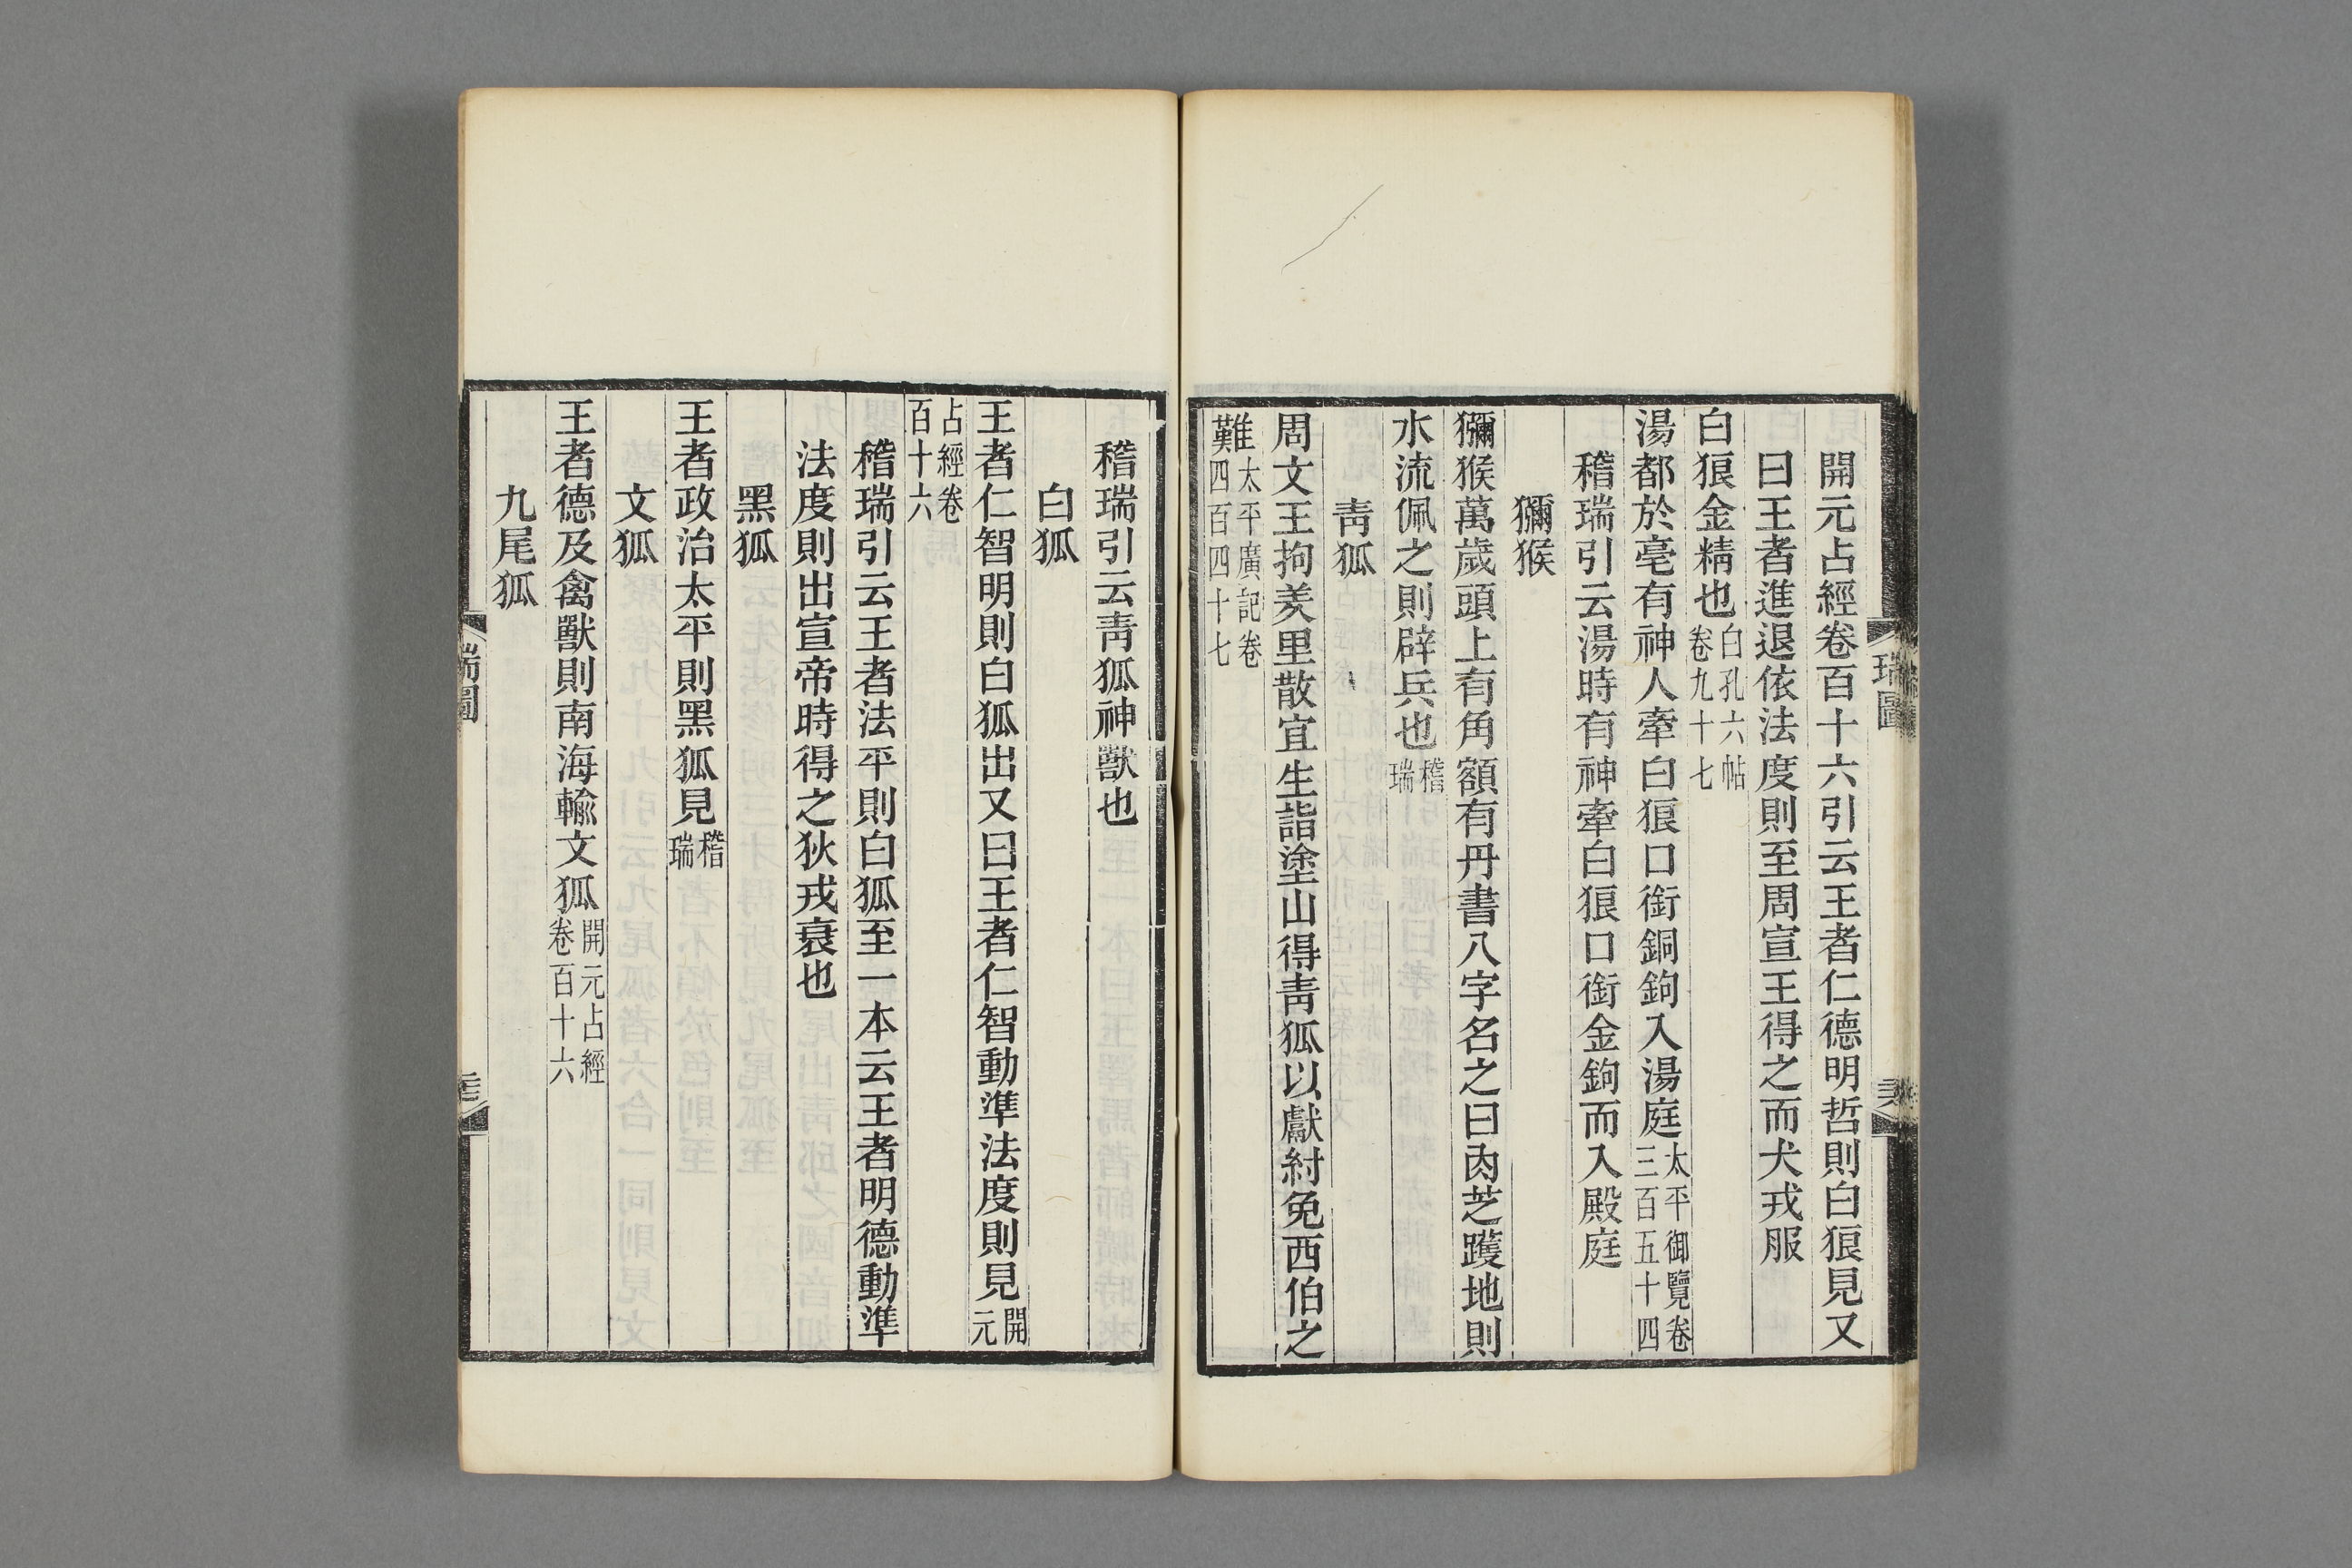 開元占經卷百十六引云王者仁德明哲則白狼見又
曰王者進退依法度則至周宣王得之而犬戎服
白狼金精也白孔六帖卷九十七
湯都於亳有神人牽白狼口銜銅鉤入湯庭太平御覽卷三百五十四
稽瑞引云湯時有神牽白狼口銜金鉤而入殿庭
獼猴
獼猴萬歲頭上有角額有丹書八字名之曰肉芝䕶地則
水流佩之則辟兵也稽瑞
靑狐
周文王拘羑里散宜生詣塗山得靑狐以獻紂免西伯之
難太平廣記卷四百四十七
瑞圖
稽瑞引云靑狐神獸也
白狐
王者仁智明則白狐出又曰王者仁智動準法度則見開元
占經卷百十六
稽瑞引云王者法平則白狐至一本云王者明德動準
法度則出宣帝時得之狄戎衰也
黑狐
王者政治太平則黑狐見稽瑞
文狐
王者德及禽獸則南海輸文狐開元占經卷百十六
九尾狐
瑞圖